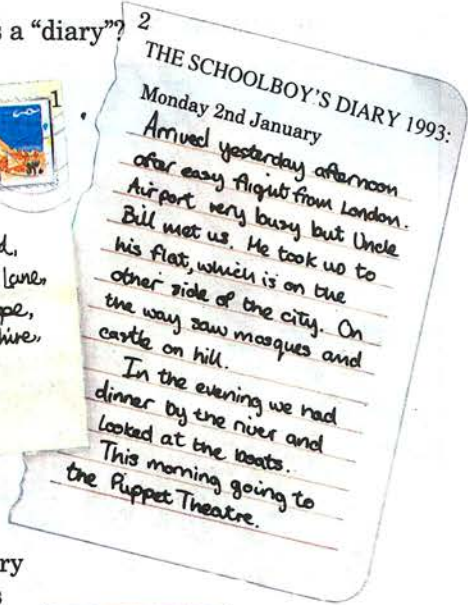 s a “diary”?
1
d,
Lane,
pe,
hire,
2
THE SCHOOLBOY'S DIARY 1993:
Monday 2nd January
Arrived yesterday afternoon
after easy flight from London.
Airport very busy but Uncle
Bill met us. He took us to
his flat, which is on the
other side of the city. On
the way saw mosques and
castle on hill.
In the evening we had
dinner by the river and
looked at the boats.
This morning going to
the Puppet Theatre.
ry
s